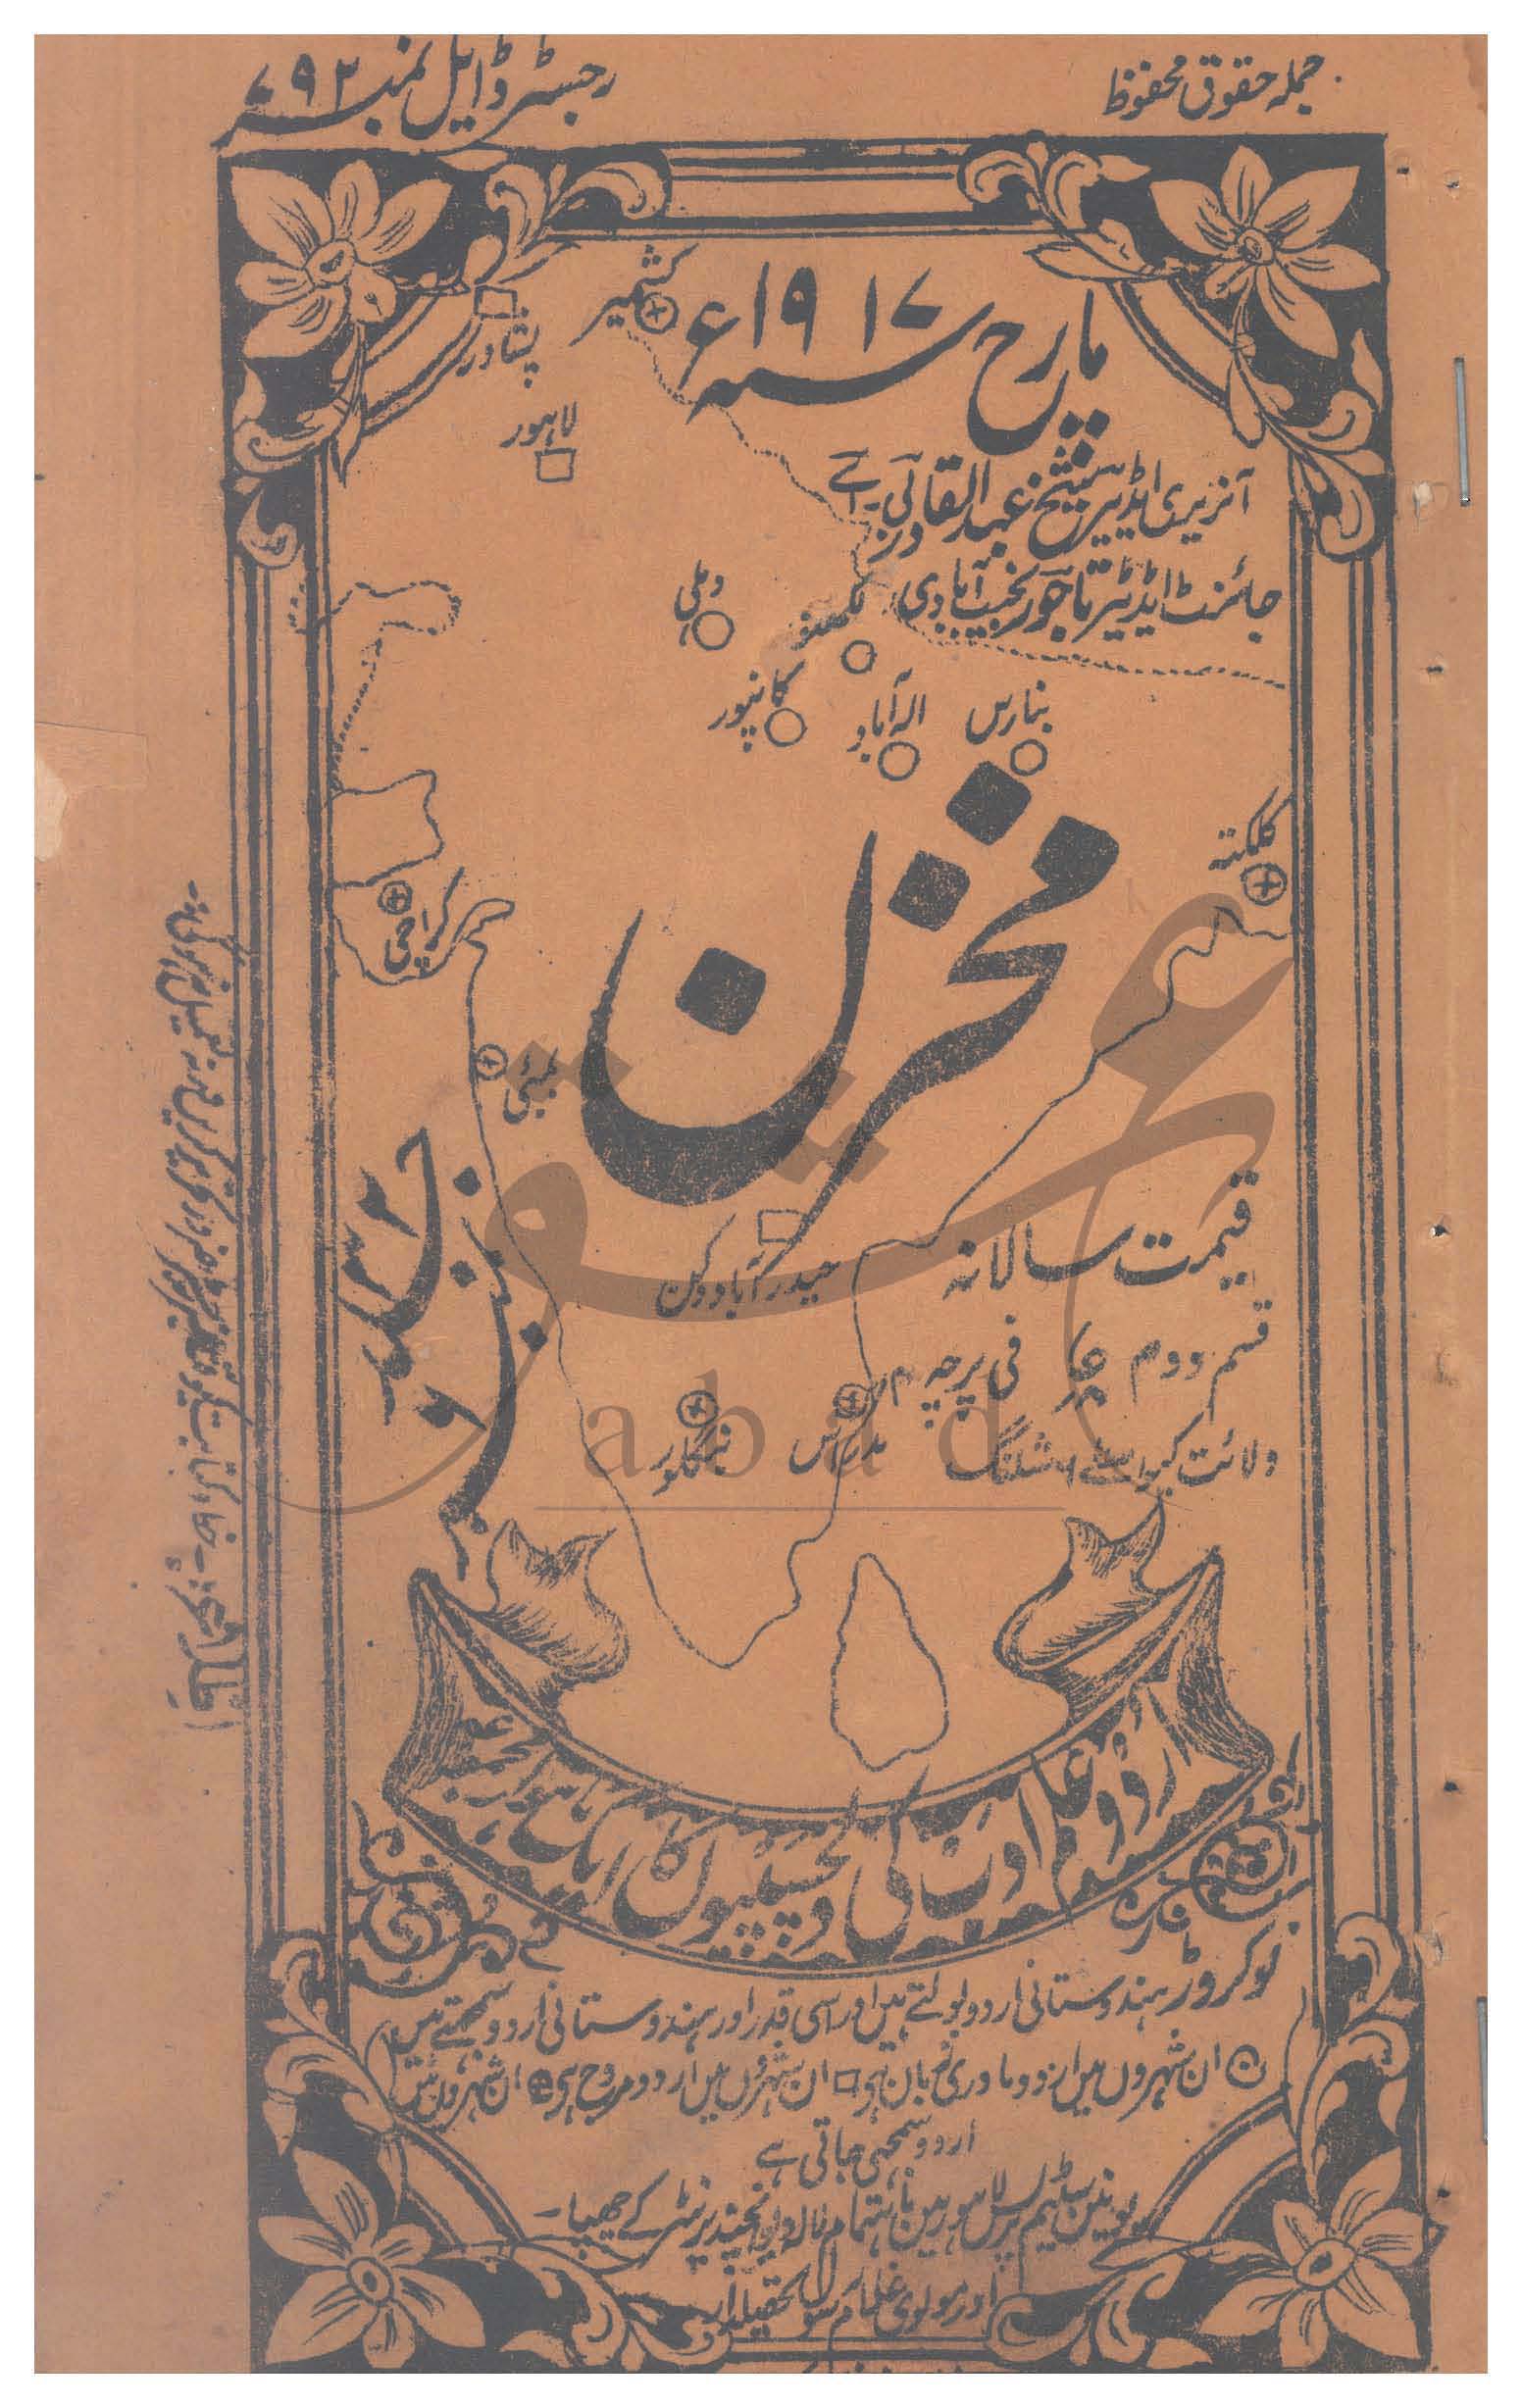 جملہ حقوق محفوظ
رجسٹرڈ ایل نمبر ۷۹۲
مارچ سنہ ۱۹۱۷ء
کشمیر
پشاور
لاہور
آنریری ایڈیٹر شیخ عبدالقادر بی۔اے
جائنٹ ایڈیٹر تاجور نجیب آبادی
دہلی
لکھنؤ
کانپور
الہ آباد
بنارس
کلکتہ
مخزن
کراچی
بمبئی
حیدرآباد دکن
قیمت سالانہ
قسم دوم
فی پرچہ ۴ر
ولائت کیواسطے ۶ شلنگ
مدراس
بنگلور
عتیق
abad
اردو علم ادب کی دلچسپیوں کا ماہوار مجموعہ
نو کروڑ ہندوستانی اردو بولتے ہیں اور اسی قدر اور ہندوستانی اردو سمجھتے ہیں
ان شہروں میں اردو مادری زبان ہی ان شہروں میں اردو مروج ہی ان شہروں میں
اردو سمجھی جاتی ہے
یونین سٹیم پریس لاہور میں باہتمام لالہ دیوانچند پرنٹر کے چھپا۔
اور مولوی غلام رسول تحصیلدار